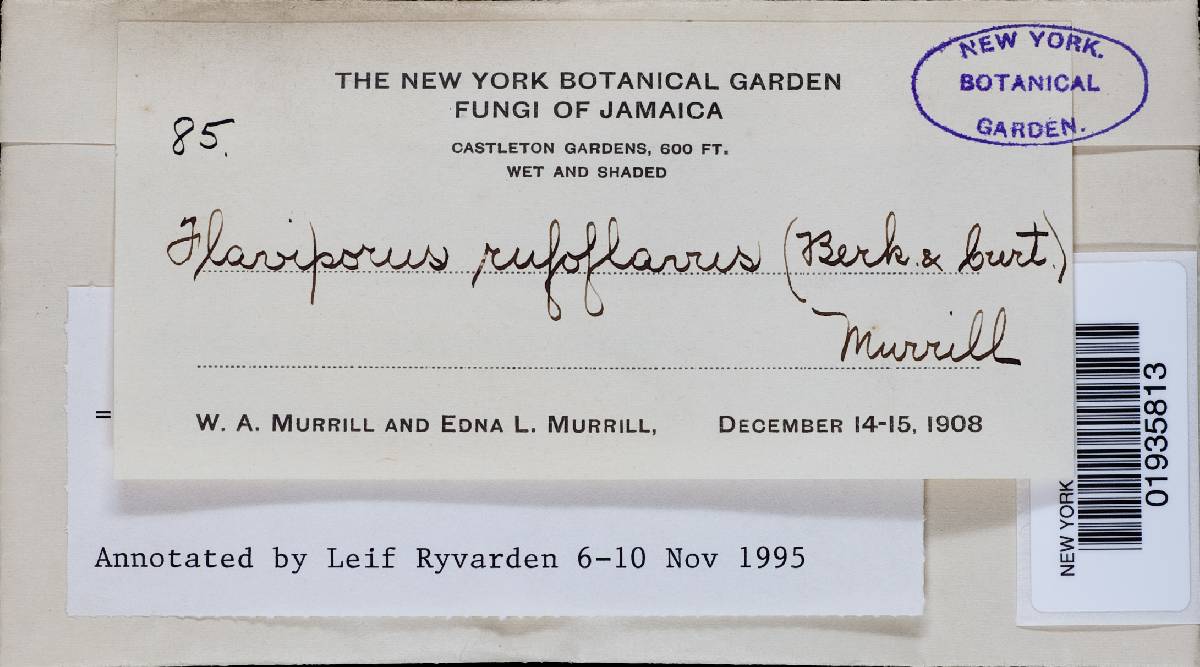 THE NEW YORK BOTANICAL GARDEN
FUNGI OF JAMAICA
85.
CASTLETON GARDENS, 600 FT.
WET AND SHADED
NEW YORK.
BOTANICAL
GARDEN.
Flaviporus rufoflavus (Berk. & Curt.)
Murrill
W. A. MURRILL AND EDNA L. MURRILL, DECEMBER 14-15, 1908
=
Annotated by Leif Ryvarden 6-10 Nov 1995
NEW YORK
01935813